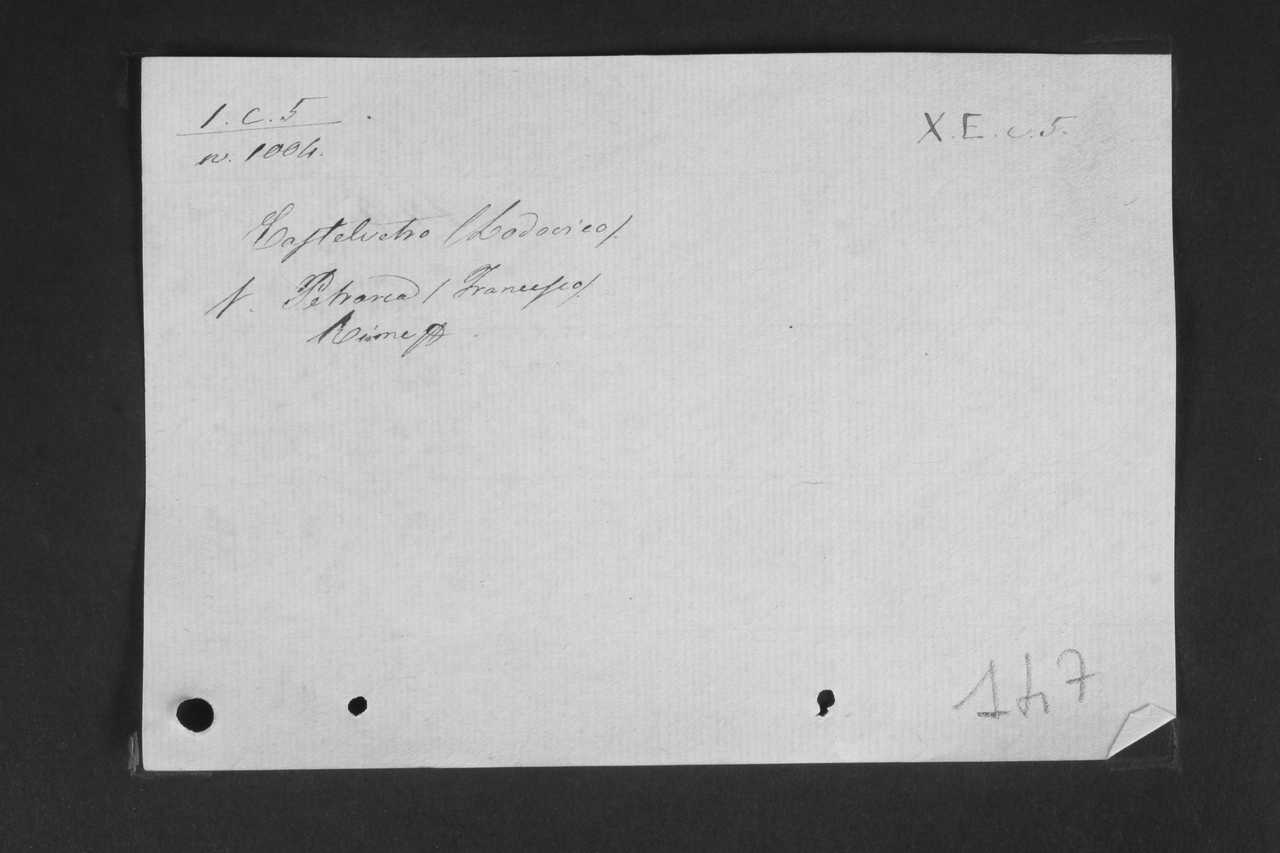 1. C. 5 .
n. 1004.
X. E. c. 5.
Castelvetro (Lodovico).
V. Petrarca (Francesco).
Rime
147